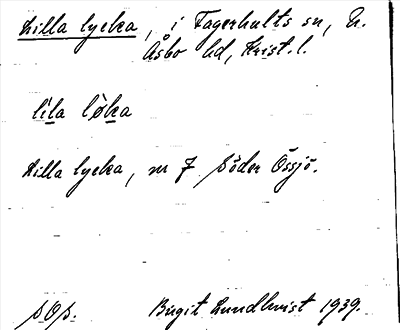 Lilla lycka, i Fagerhults sn, N.
Åsbo hd, Krist. l.
lila løka
Lilla lycka, nr 7 Söder Össjö.
SOs. Birgit Lundkvist 1939.